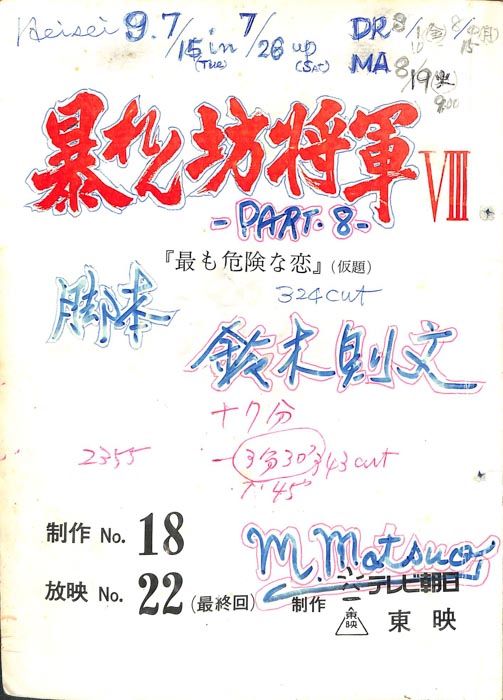 Heisei 9. 7/15 in 7/26 up
(TUE) (SAT)
DR 8/
MA 8/19 火
9:00
暴れん坊将軍 VIII
-PART.8-
『最も危険な恋』(仮題)
324cut
脚本
鈴木則文
+7分
2355
-3分30" 343cut
45"
制作 No. 18
M. Matsuo
放映 No. 22 (最終回)
制作 テレビ朝日
東映 東映